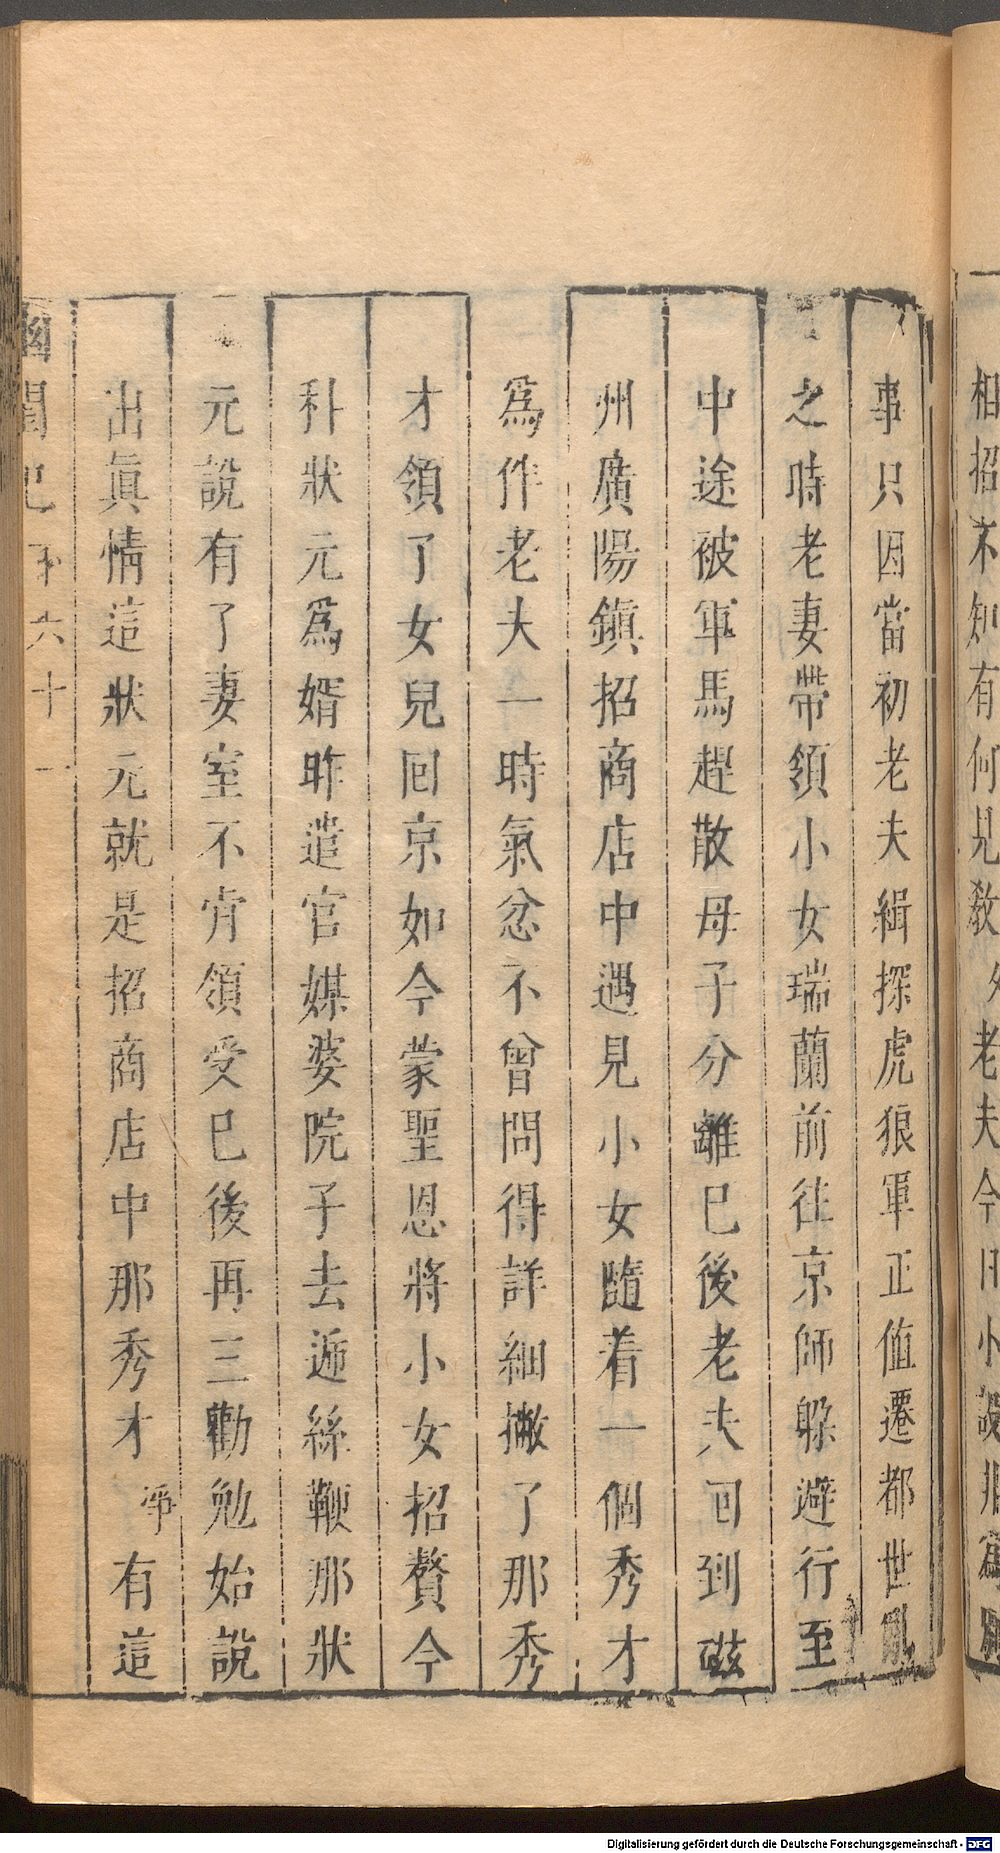 相招不知有何見敎 老夫今日小設非爲別
事只因當初老夫緝探虎狼軍正値遷都世亂
之時老妻帶領小女瑞蘭前往京師躱避行至
中途被軍馬趕散母子分離已後老夫回到磁
州廣陽鎭招商店中遇見小女隨着一個秀才
爲作老夫一時氣忿不曾問得詳細撇了那秀
才領了女兒回京如今蒙聖恩將小女招贅今
科狀元爲婿昨遣官媒婆院子去遞絲鞭那狀
元說有了妻室不肯領受已後再三勸勉始說
出眞情這狀元就是招商店中那秀才 淨 有這
幽閨記 下 六十一
Digitalisierung gefördert durch die Deutsche Forschungsgemeinschaft - DFG